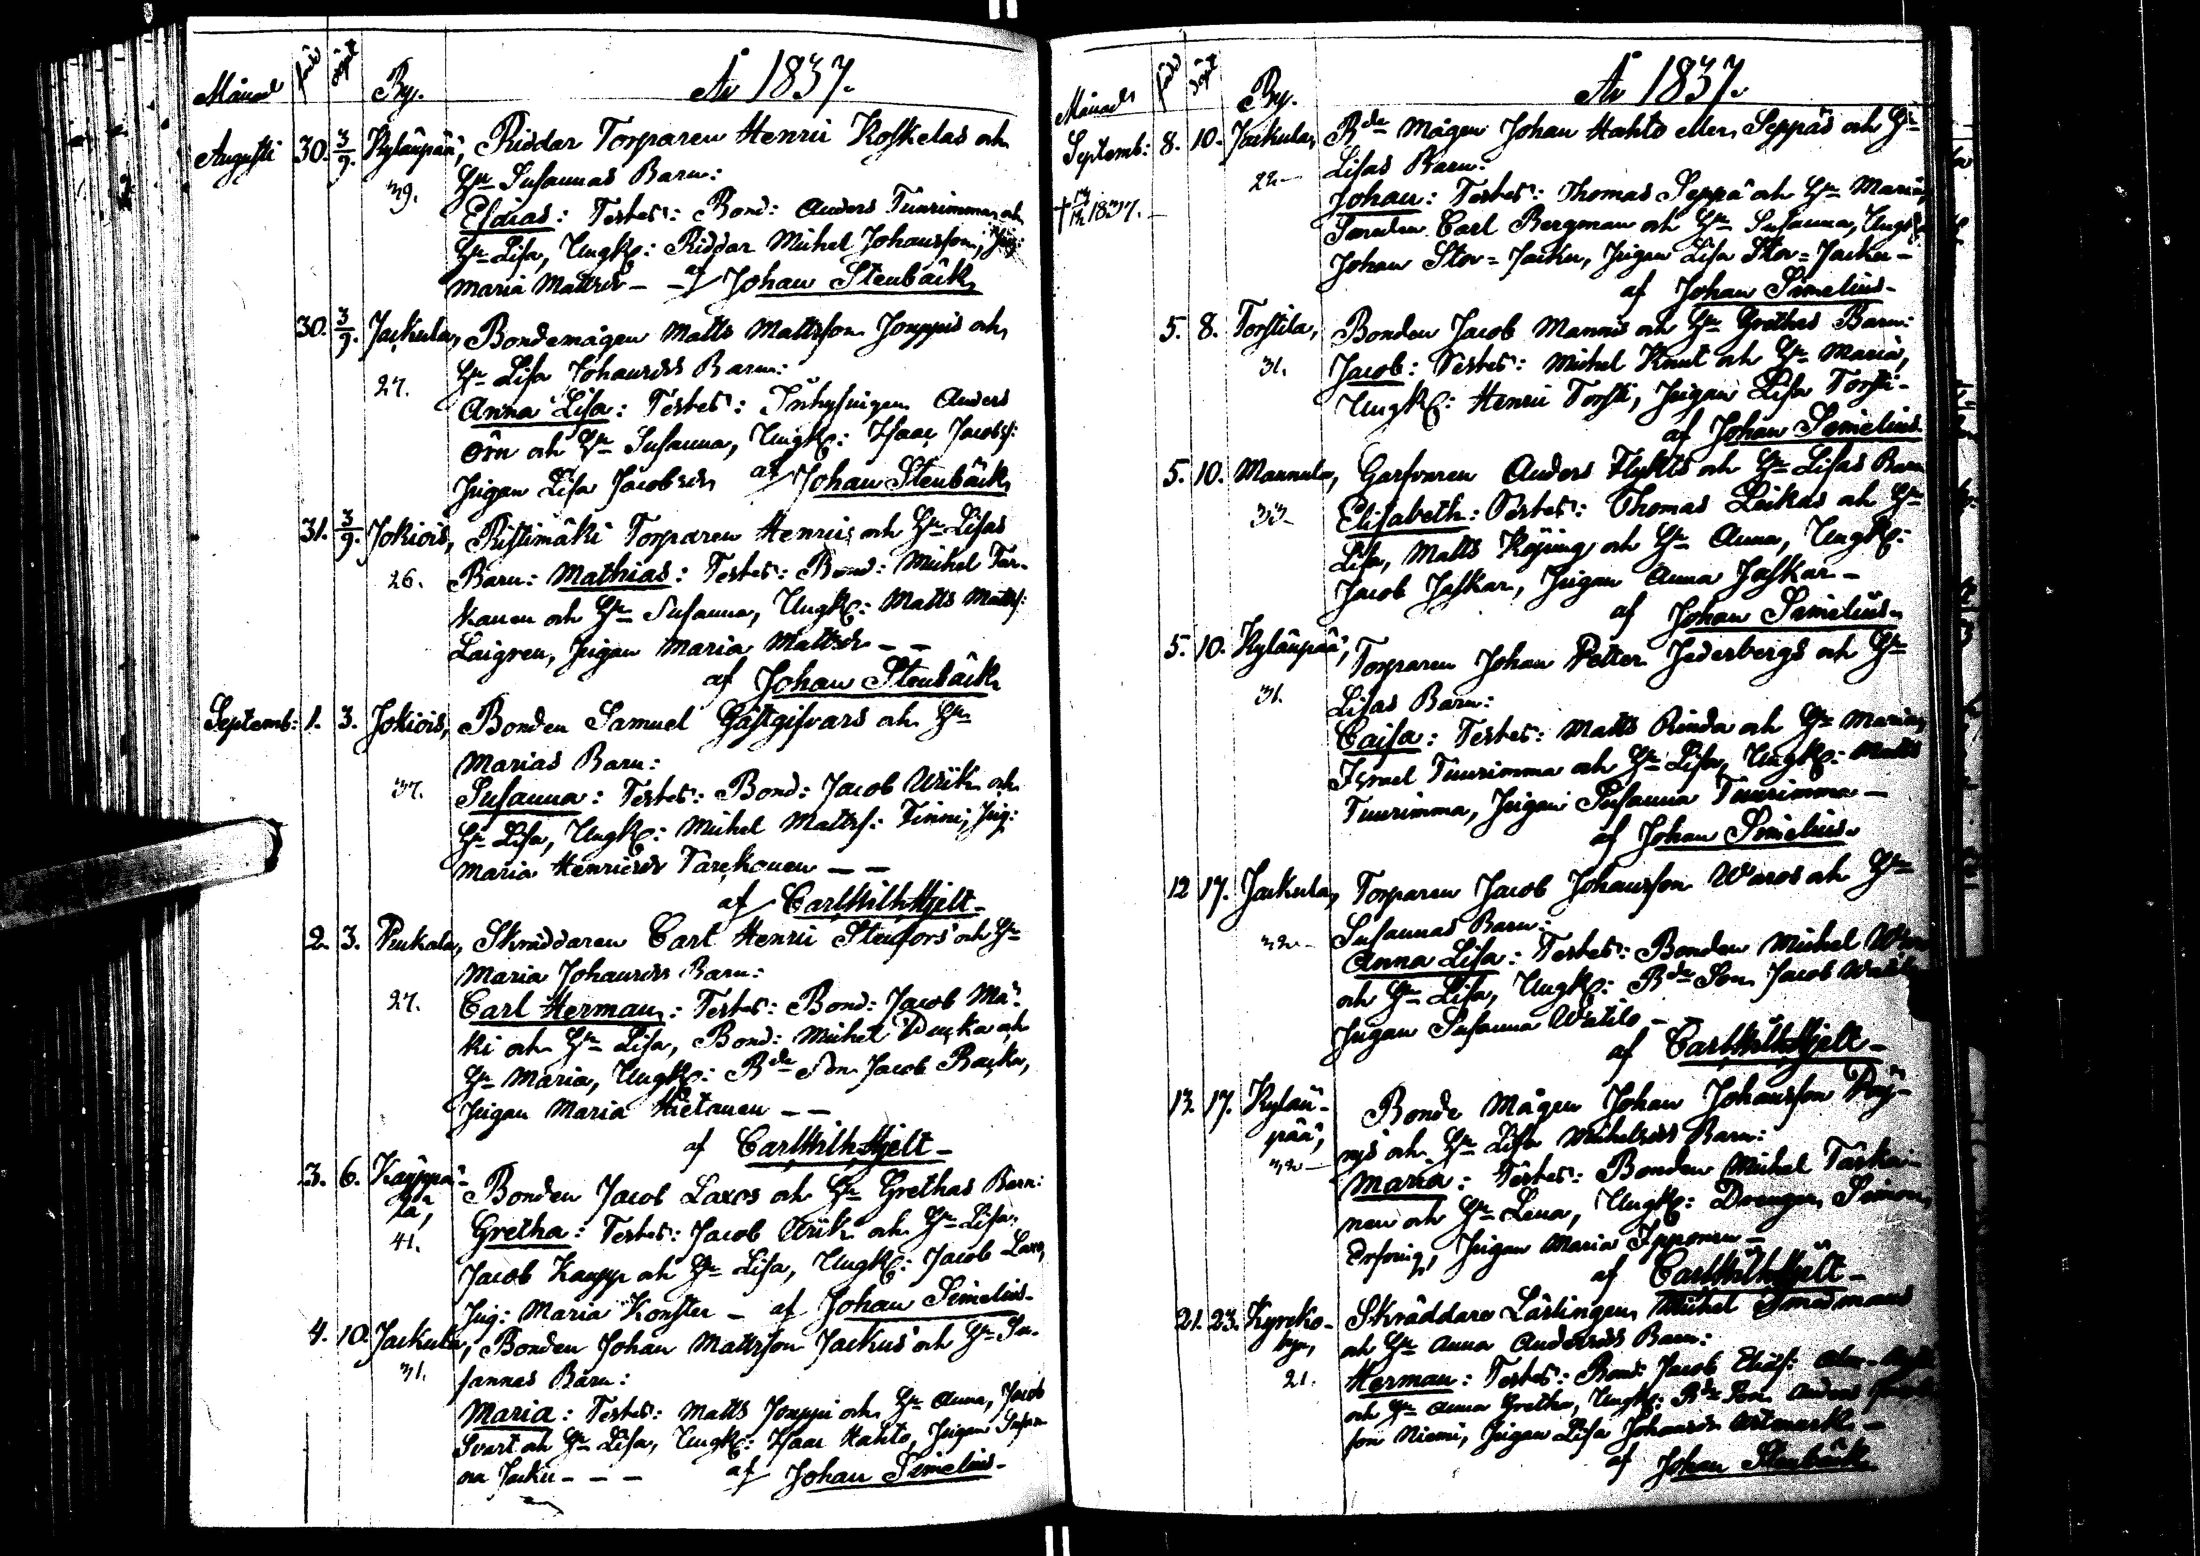 Månad född döpt By. År 1837.
Augusti 30. 3/9. Kyläupää, Riddar Torparen Henric Koskelas och
39. Hu Susannas Barn:
Esaias: Testes: Bond: Anders Tuurimmaa och
Hu Lisa, Ungk: Riddar Michel Johansson, Pig:
Maria Mattsdr — af Johan Stenbäck
30. 3/9. Jackula, Bondemågen Matts Mattsson Jouppis och
27. Hu Lisa Johansdrs Barn:
Anna Lisa: Testes: Inhysingen Anders
Örn och Hu Susanna, Ungk: Isaac Jacobss:
Pigan Lisa Jacobsdr af Johan Stenbäck
31. 3/9. Jokiois, Ristimäki Torparen Henrics och Hu Lisas
26. Barn: Mathias: Testes: Bond: Michel Tar-
kanen och Hu Susanna, Ungk: Matts Matts:
Laigren, Pigan Maria Mattsdr — —
af Johan Stenbäck
Septemb: 1. 3. Jokiois, Bonden Samuel Gästgifvars och Hu
Marias Barn:
37. Susanna: Testes: Bond: Jacob Wiik och
Hu Lisa, Ungk: Michel Mattss: Finni, Pig:
Maria Henricsdr Tarckonen — —
af Carl Wilh. Hjelt —
2. 3. Penkala, Skräddaren Carl Henric Stenfors och Hu
Maria Johansdrs Barn:
27. Carl Herman: Testes: Bond: Jacob Mä-
ki och Hu Lisa, Bond: Michel Packa och
Hu Maria, Ungk: Bde Son Jacob Backa,
Pigan Maria Hietanen — —
af Carl Wilh. Hjelt —
3. 6. Kauppa- Bonden Jacob Laxos och Hu Grethas Barn:
la,
41. Gretha: Testes: Jacob Wiik och Hu Lisa,
Jacob Kaupp och Hu Lisa, Ungk: Jacob Laxo,
Pig: Maria Konster — af Johan Simelius —
4. 10. Jackula, Bonden Johan Mattsson Jackus och Hu Su-
31. sannas Barn:
Maria: Testes: Matts Jouppi och Hu Anna, Jacob
Svart och Hu Lisa, Ungk: Isaac Hahto, Pigan Susan-
na Jacku — — — af Johan Simelius —
Månad född döpt By. År 1837.
Septemb: 8. 10. Jackula, Bde Mågen Johan Hahto eller Seppäs och Hu
22 — Lisas Barn:
† 1837. — Johan: Testes: Thomas Seppä och Hu Maria,
Smeden Carl Bergman och Hu Susanna, Ungk:
Johan Stor=Jacku, Pigan Lisa Stor=Jacku —
af Johan Simelius —
5. 8. Torstila, Bonden Jacob Mannis och Hu Grethas Barn:
31. Jacob: Testes: Michel Knut och Hu Maria,
Ungk: Henric Torsti, Pigan Lisa Torsti —
af Johan Simelius
5. 10. Mannula, Garfvaren Anders Flykts och Hu Lisas Barn
33 — Elisabeth: Testes: Thomas Leikas och Hu
Lisa, Matts Köping och Hu Anna, Ungk:
Jacob Jaskar, Pigan Anna Jaskar —
af Johan Simelius —
5. 10. Kyläupää, Torparen Johan Petter Jederbergs och Hu
31. Lisas Barn:
Caisa: Testes: Matts Rinda och Hu Maria,
Israel Tuurimma och Hu Lisa, Ungk: Matts
Tuurimma, Pigan Susanna Tuurimma —
af Johan Simelius —
12 17. Jackula, Torparen Jacob Johansson Waros och Hu
32 — Susannas Barn:
Anna Lisa: Testes: Bonden Michel
och Hu Lisa, Ungk: Bde Son Jacob
Pigan Susanna Watilo —
af Carl Wilh. Hjelt —
13. 17. Kyläu- Bonde Mågen Johan Johansson Pöy-
pää,
32 — rys och Hu Lisa Michelsdrs Barn:
Maria: Testes: Bonden Michel Tarka-
nen och Hu Lena, Ungk: Drengen Simon
Pigan Maria Ipponen —
af Carl Wilh. Hjelt —
21. 23. Kyrko- Skräddare Lärlingen Michel Smedmans
byn, och Hu Anna Andersdrs Barn:
21. Herman: Testes: Bond: Jacob Eliass:
och Hu Anna Gretha, Ungk: Bde Son Anders
son Niemi, Pigan Lisa Johansdr Witmark —
af Johan Stenbäck